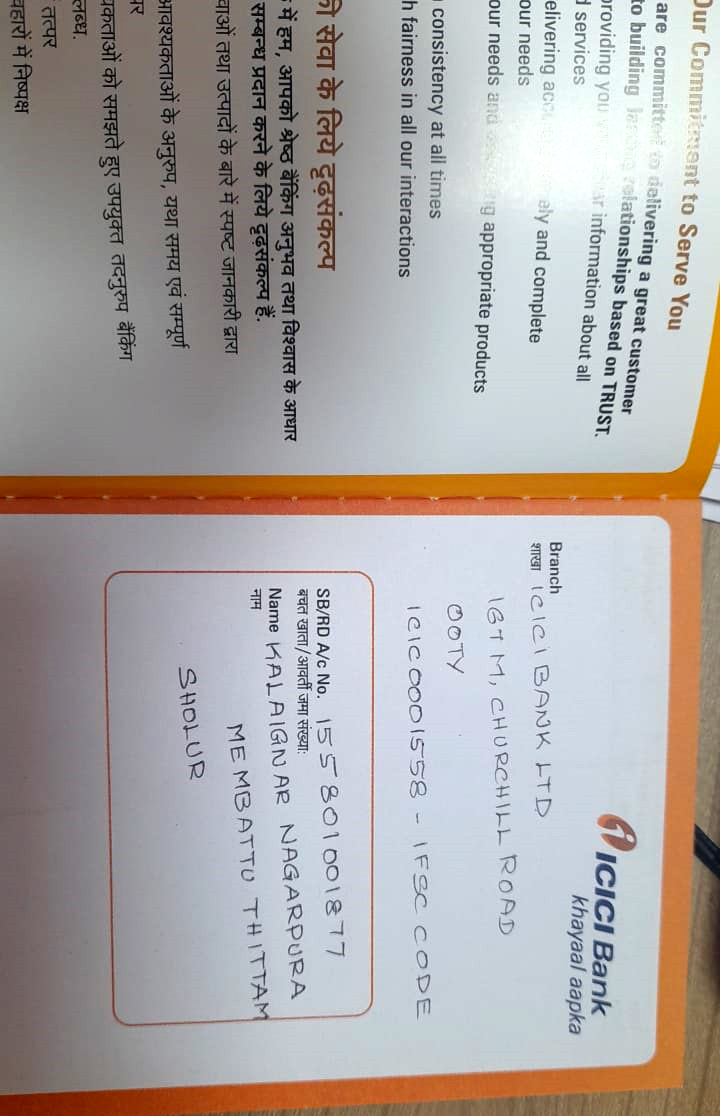 Our Commitment to Serve You
are committed to delivering a great customer
to building relationships based on TRUST.
providing you information about all
services
elivering ely and complete
our needs
our needs and appropriate products
consistency at all times
h fairness in all our interactions
की सेवा के लिये दृढ़संकल्प
में हम, आपको श्रेष्ठ बैंकिंग अनुभव तथा विश्वास के आधार
सम्बन्ध प्रदान करने के लिये दृढ़संकल्प हैं.
वाओं तथा उत्पादों के बारे में स्पष्ट जानकारी द्वारा
आवश्यकताओं के अनुरुप, यथा समय एवं सम्पूर्ण
पर
यकताओं को समझते हुए उपयुक्त तदनुरुप बैंकिंग
लब्ध.
तत्पर
यहारों में निष्पक्ष
ICICI Bank
khayaal aapka
Branch
शाखा ICICI BANK LTD
CHURCHILL ROAD
OOTY
ICIC0001558 - IFSC CODE
SB/RD A/c No. 155801001877
बचत खाता/आवर्ती जमा संख्या:
Name KALAIGNAR NAGARPURA
नाम
MEMBATTU THITTAM
SHOLUR